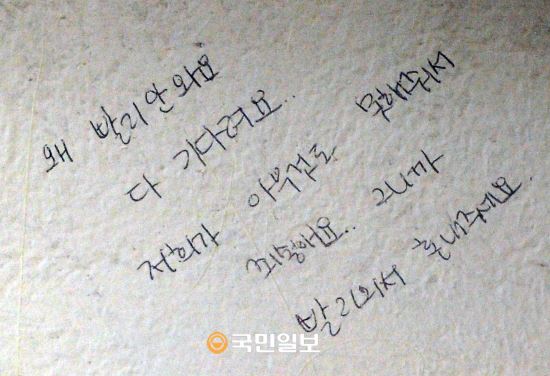 왜 빨리 안와요
다 기다려요..
저희가 아무것도 못해줘서
미안해요.. 그니까
빨리와서 혼내주세요.
국민일보